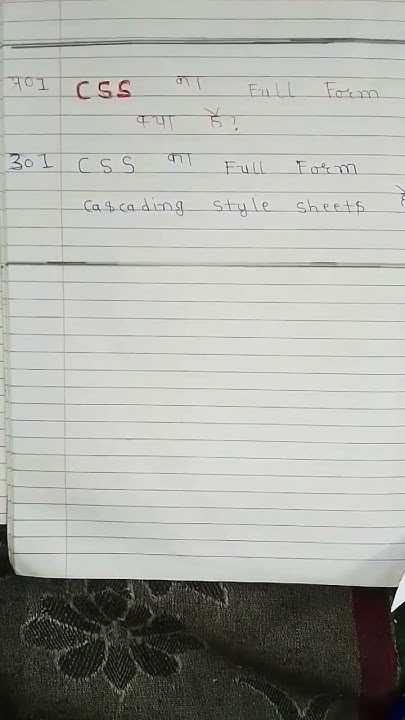 प्र01 CSS का Full Form
क्या है?
उ01 CSS का Full Form
Cascading Style Sheets है